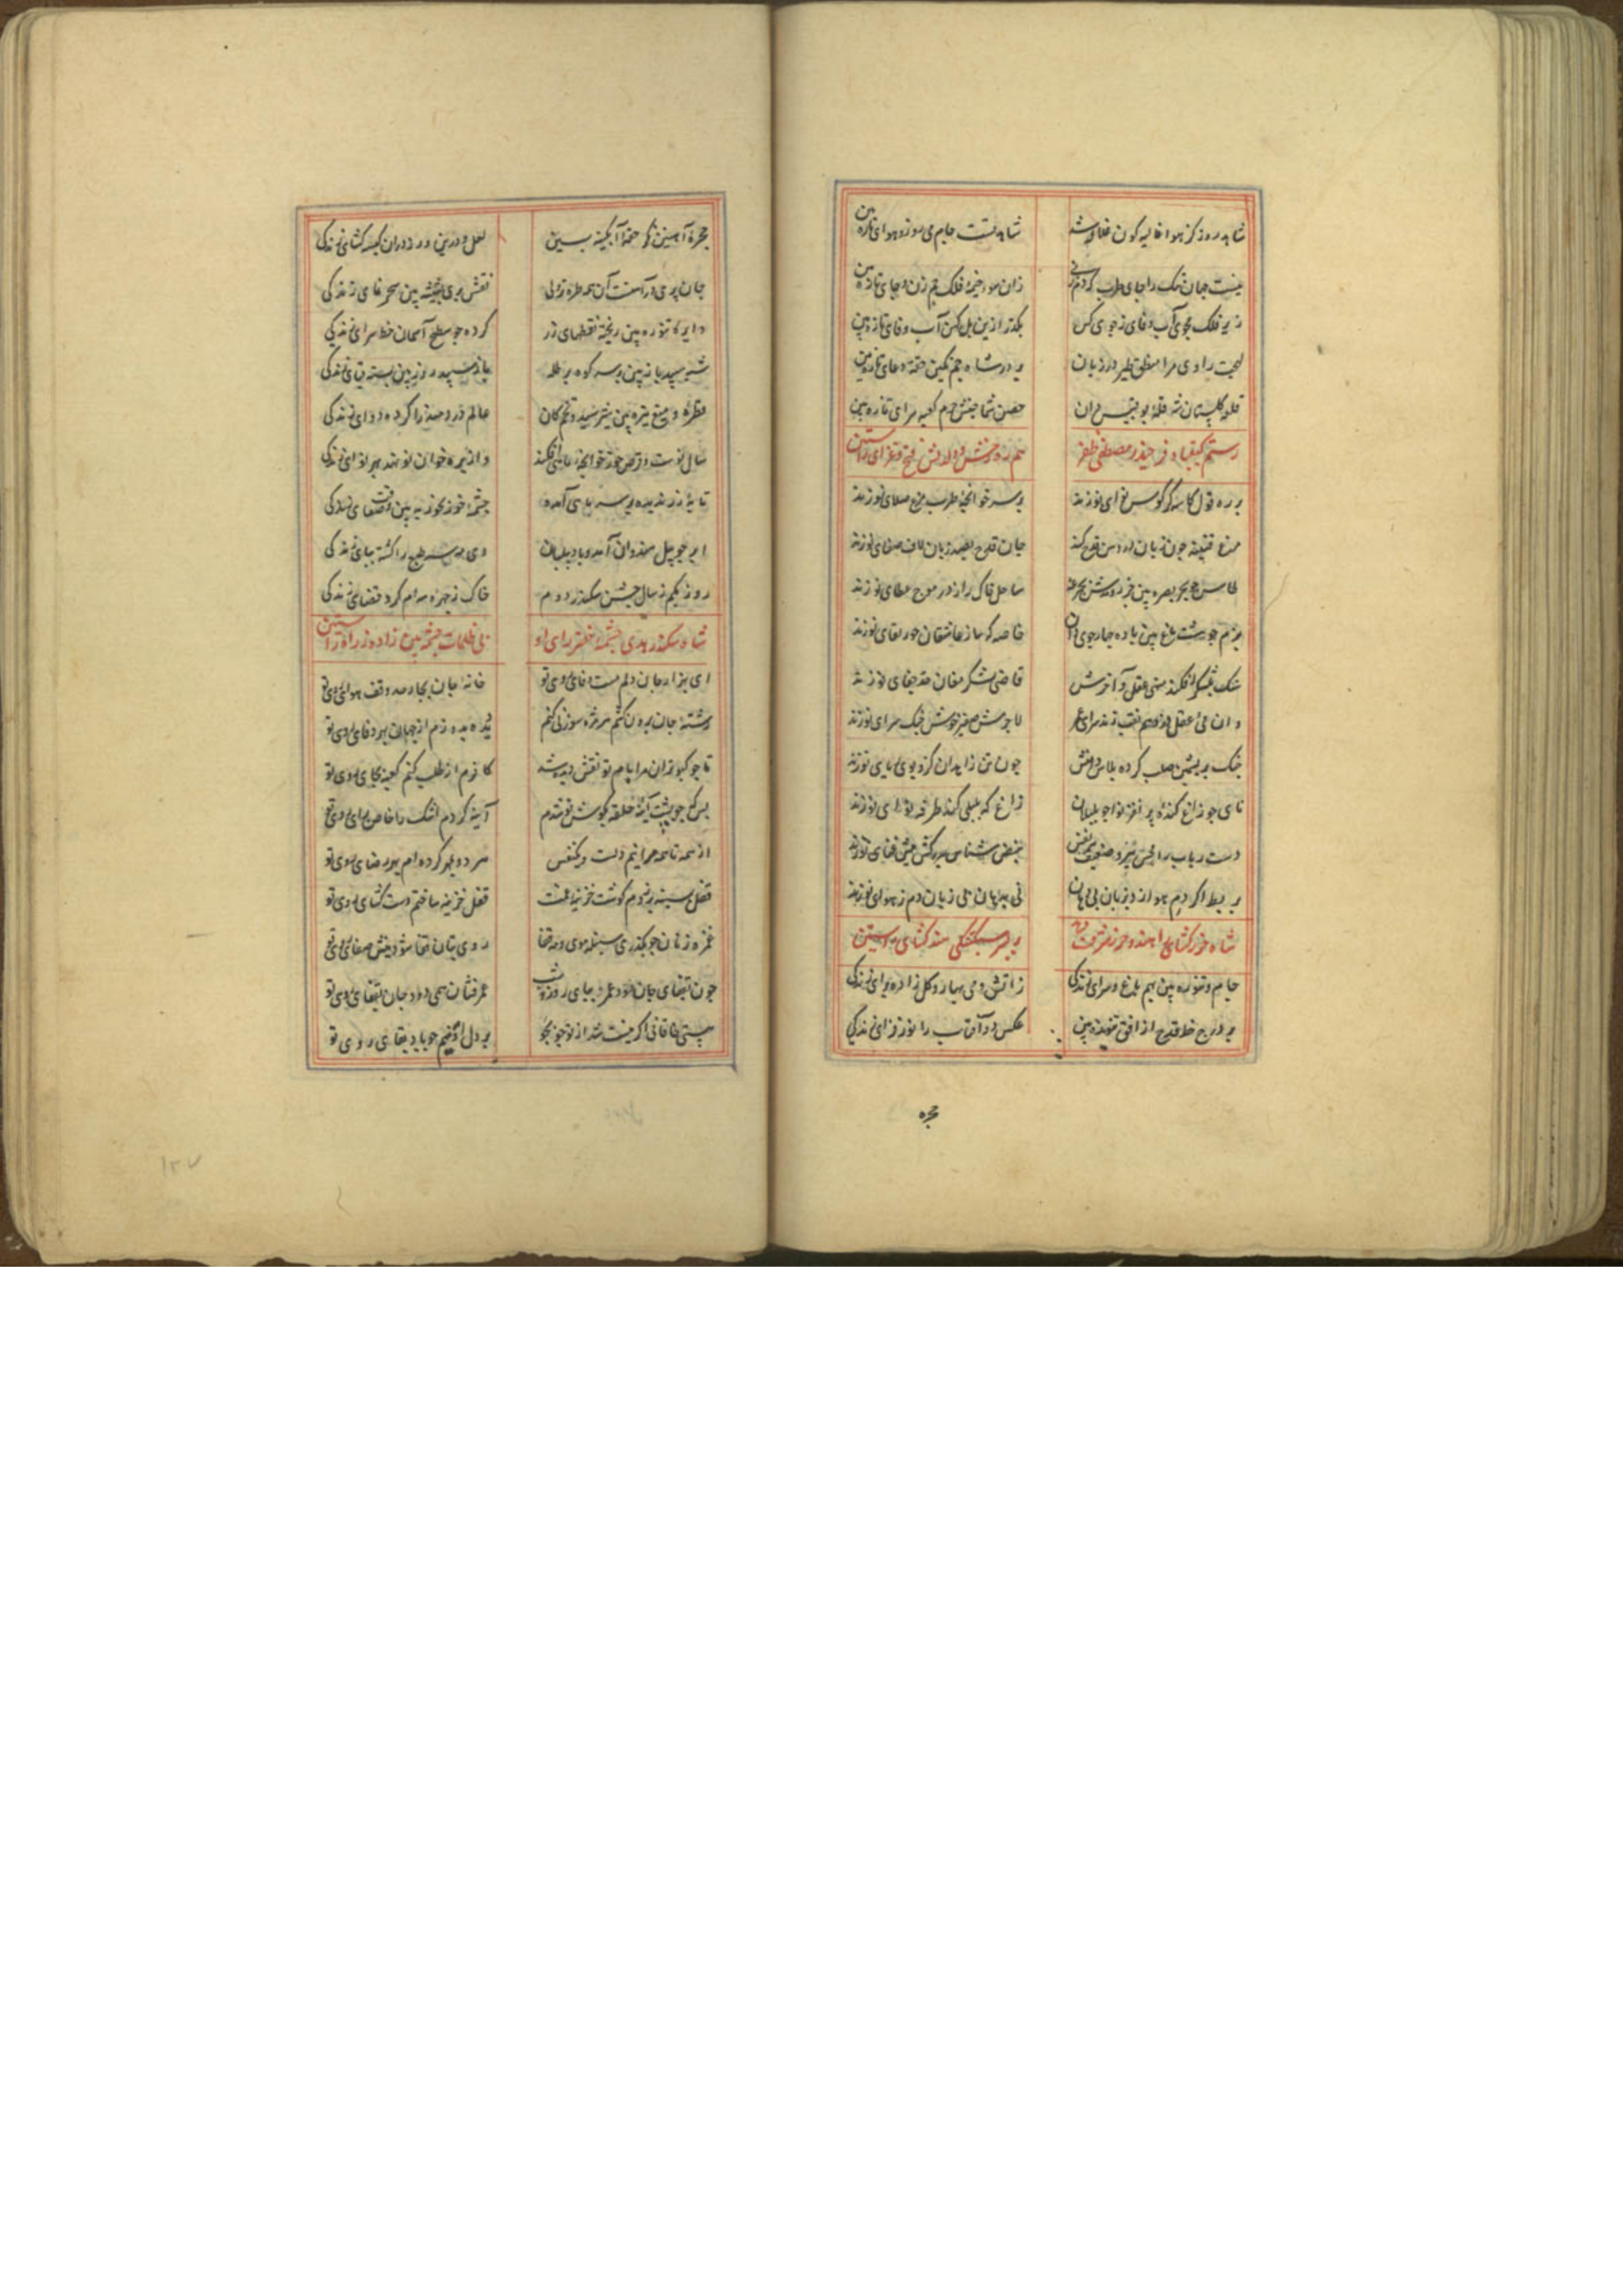 شاهد روز کز هوا غالیه کون غلاله شد شاهد تست جام می روز و هوای تازه بین
نیست جهان تنک را جای طرب که دم زنی زان سوی خیمه فلک خیم زن و جای تازه بین
زیر فلک مجوی آب وفای ز جوی کس بگذر ازین پل کهن آب وفای تازه بین
لهجت راوی مرا منطق طیر در زبان بر در شاه جم نکین تحفه دعای تازه بین
قلعه کلستان شه قله بوقبیس دان حصن شماخیش حرم کعبه سرای تازه بین
رستم کیقباد فر حیدر مصطفی ظفر همره رخش و دلدلش فتح و غزای راستین
بر ره قول کاسه کر کوس نوای نو زند بر سر خوانچه طرب مرغ صلای نو زند
مرغ قنینه چون زبان در دهن قدح کند جان قدح بصد زبان لاف صفای نو زند
طاس چو بحر بصره بین جزر و مدش بجرعه ساحل خاک را ز در موج عطای نو زند
بزم چو هشت باغ بین باده چهار جوی دان خاصه که ساز عاشقان حور لقای نو زند
شنک بلشکر افکند منهی عقل و آخرش قاضی لشکر مغان حد جفای نو زند
وان می عقل دزد هم نقب زند سرای غم لاجرمش صفیر خوش چنک سرای نو زند
چنک بریشمین صلب کرده پلاس دامنش چون تن زاهدان کزو بوی ریای نو زند
نای چو زاغ کنده پر نغز نوا چو بلبلان زاغ که بلبلی کند طرفه نوای نو زند
دست رباب را مجس تیز و ضعیف هر نفس نبض شناس بر رکش نیش عنای نو زند
بربط اگر دم هوا زد بزبان بی دهان نی بدهان بی زبان دم ز هوای نو زند
شاه خزر کشای را هند و خزر شرف دهد بر پسر سبکتکین هند کشای راستین
جام و تنوره بین بهم باغ و سرای زندکی زاتش و می بهار و کل زاده برای زندکی
بر درج خط قدح از افق تنوره بین عکس دو آفتاب را نور فزای زندکی
مجره
مجره آهنین نکر حقه آبکینه بین لعل و در این و زر در آن کیسه کشای زندکی
جان پری در آهنست آن همه طره زرلی نقش پری بشیشه بین سحر نمای زندکی
دایره تنوره بین ریخته نقطهای زر کرده چو سطح آسمان خط سرای زندکی
شبه سپید باز بین بر سر کوه بر طله باز سپید روز بین بسته قبای زندکی
قطره و میغ تیره بین شیر سپید و تخم کان عالم دردمند را کرده دوای زندکی
سال نوست و قرص خور خوانچه ماهی افکند وز بره خوان نو نهد بهر نوای زندکی
تابه زر ندیده بر سر ماهی آمده چشمه خور بحوت بین وقت صفای زندکی
ابر چو پیل هندوان آمد و باد پیلبان دی بنه سطح را کشته بپای زندکی
روز یکم ز سال جشن سکندر دوم خاک ز جرعه سرام کرد قضای زندکی
شاه سکندر هدی چشمه خضر رای او نی ظلمات چشمه بین زاده ز رای راستین
ای بهزار جان دلم مست وفای روی تو خانه جان بچار حد وقف هوای روی تو
رشته جان برون کشم هر مژه سوزنی کنم دیده بدوزم از جهان بهر وفای روی تو
تا چو کبوتران مرا بام تو نقش دیده شد کافرم ار طلب کنم کعبه بجای روی تو
بس که چو پشت آینه حلقه بکوش تو شدم آینه کردم اشک را خاص برای روی تو
از همه تا همه مرا نیم دلست و یکنفس هر دو بهم کرده ام بهر رضای روی تو
قفل بسینه بر زدم کوست خزینه غمت قفل خزینه ساختم دست کشای روی تو
غمزه زنان چو بکذری سنبله موی و مه قفا روی بتان قفا شود پیش صفای روی تو
چون بقضای جان خود عمر بجای روز و شب عمر فشان همی دود جان بقفای روی تو
هستی خاقانی اکر نیست شد از تو جو بجو بر دل او بنیم جو باد بقای روی تو
۱۲۷